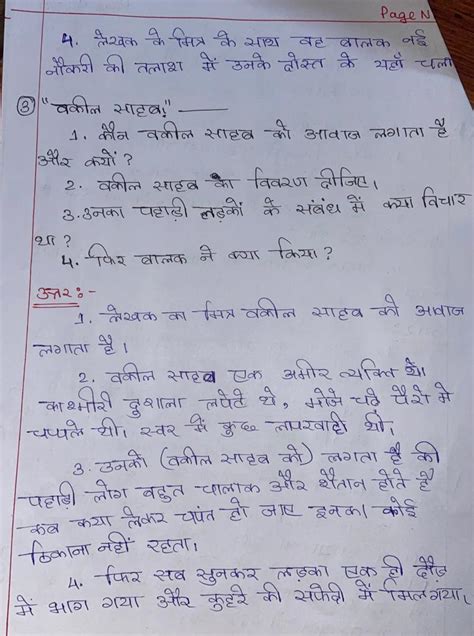 Page N
4. लेखक के मित्र के साथ वह बालक नई
नौकरी की तलाश में उनके दोस्त के यहाँ चला
③ "वकील साहब!" ——
1. कौन वकील साहब को आवाज लगाता है
और क्यों ?
2. वकील साहब का विवरण दीजिए।
3. उनका पहाड़ी लड़कों के संबंध में क्या विचार
था ?
4. फिर बालक ने क्या किया ?
उत्तर :-
1. लेखक का मित्र वकील साहब को आवाज
लगाता है।
2. वकील साहब एक अमीर व्यक्ति थे।
काश्मीरी दुशाला लपेटे थे, मोजे चढ़े पैरों में
चप्पले थी। स्वर में कुछ लापरवाही थी।
3. उनको (वकील साहब को) लगता है की
पहाड़ी लोग बहुत चालाक और शैतान होते है
कब क्या लेकर चपंत हो जाए इनका कोई
ठिकाना नहीं रहता।
4. फिर सब सुनकर लड़का एक ही दौड़
में भाग गया और कुहरे की सफेदी में मिल गया।